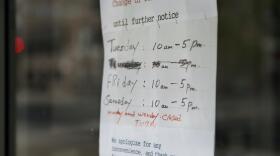 Change in
until further notice
Tuesday : 10 am – 5 pm.
: 10 am – 5 pm.
Friday : 10 am – 5 pm.
Saturday : 10 am – 5 pm.
sunday and monday CLOSED
We apologise for any
inconvenience, and thank